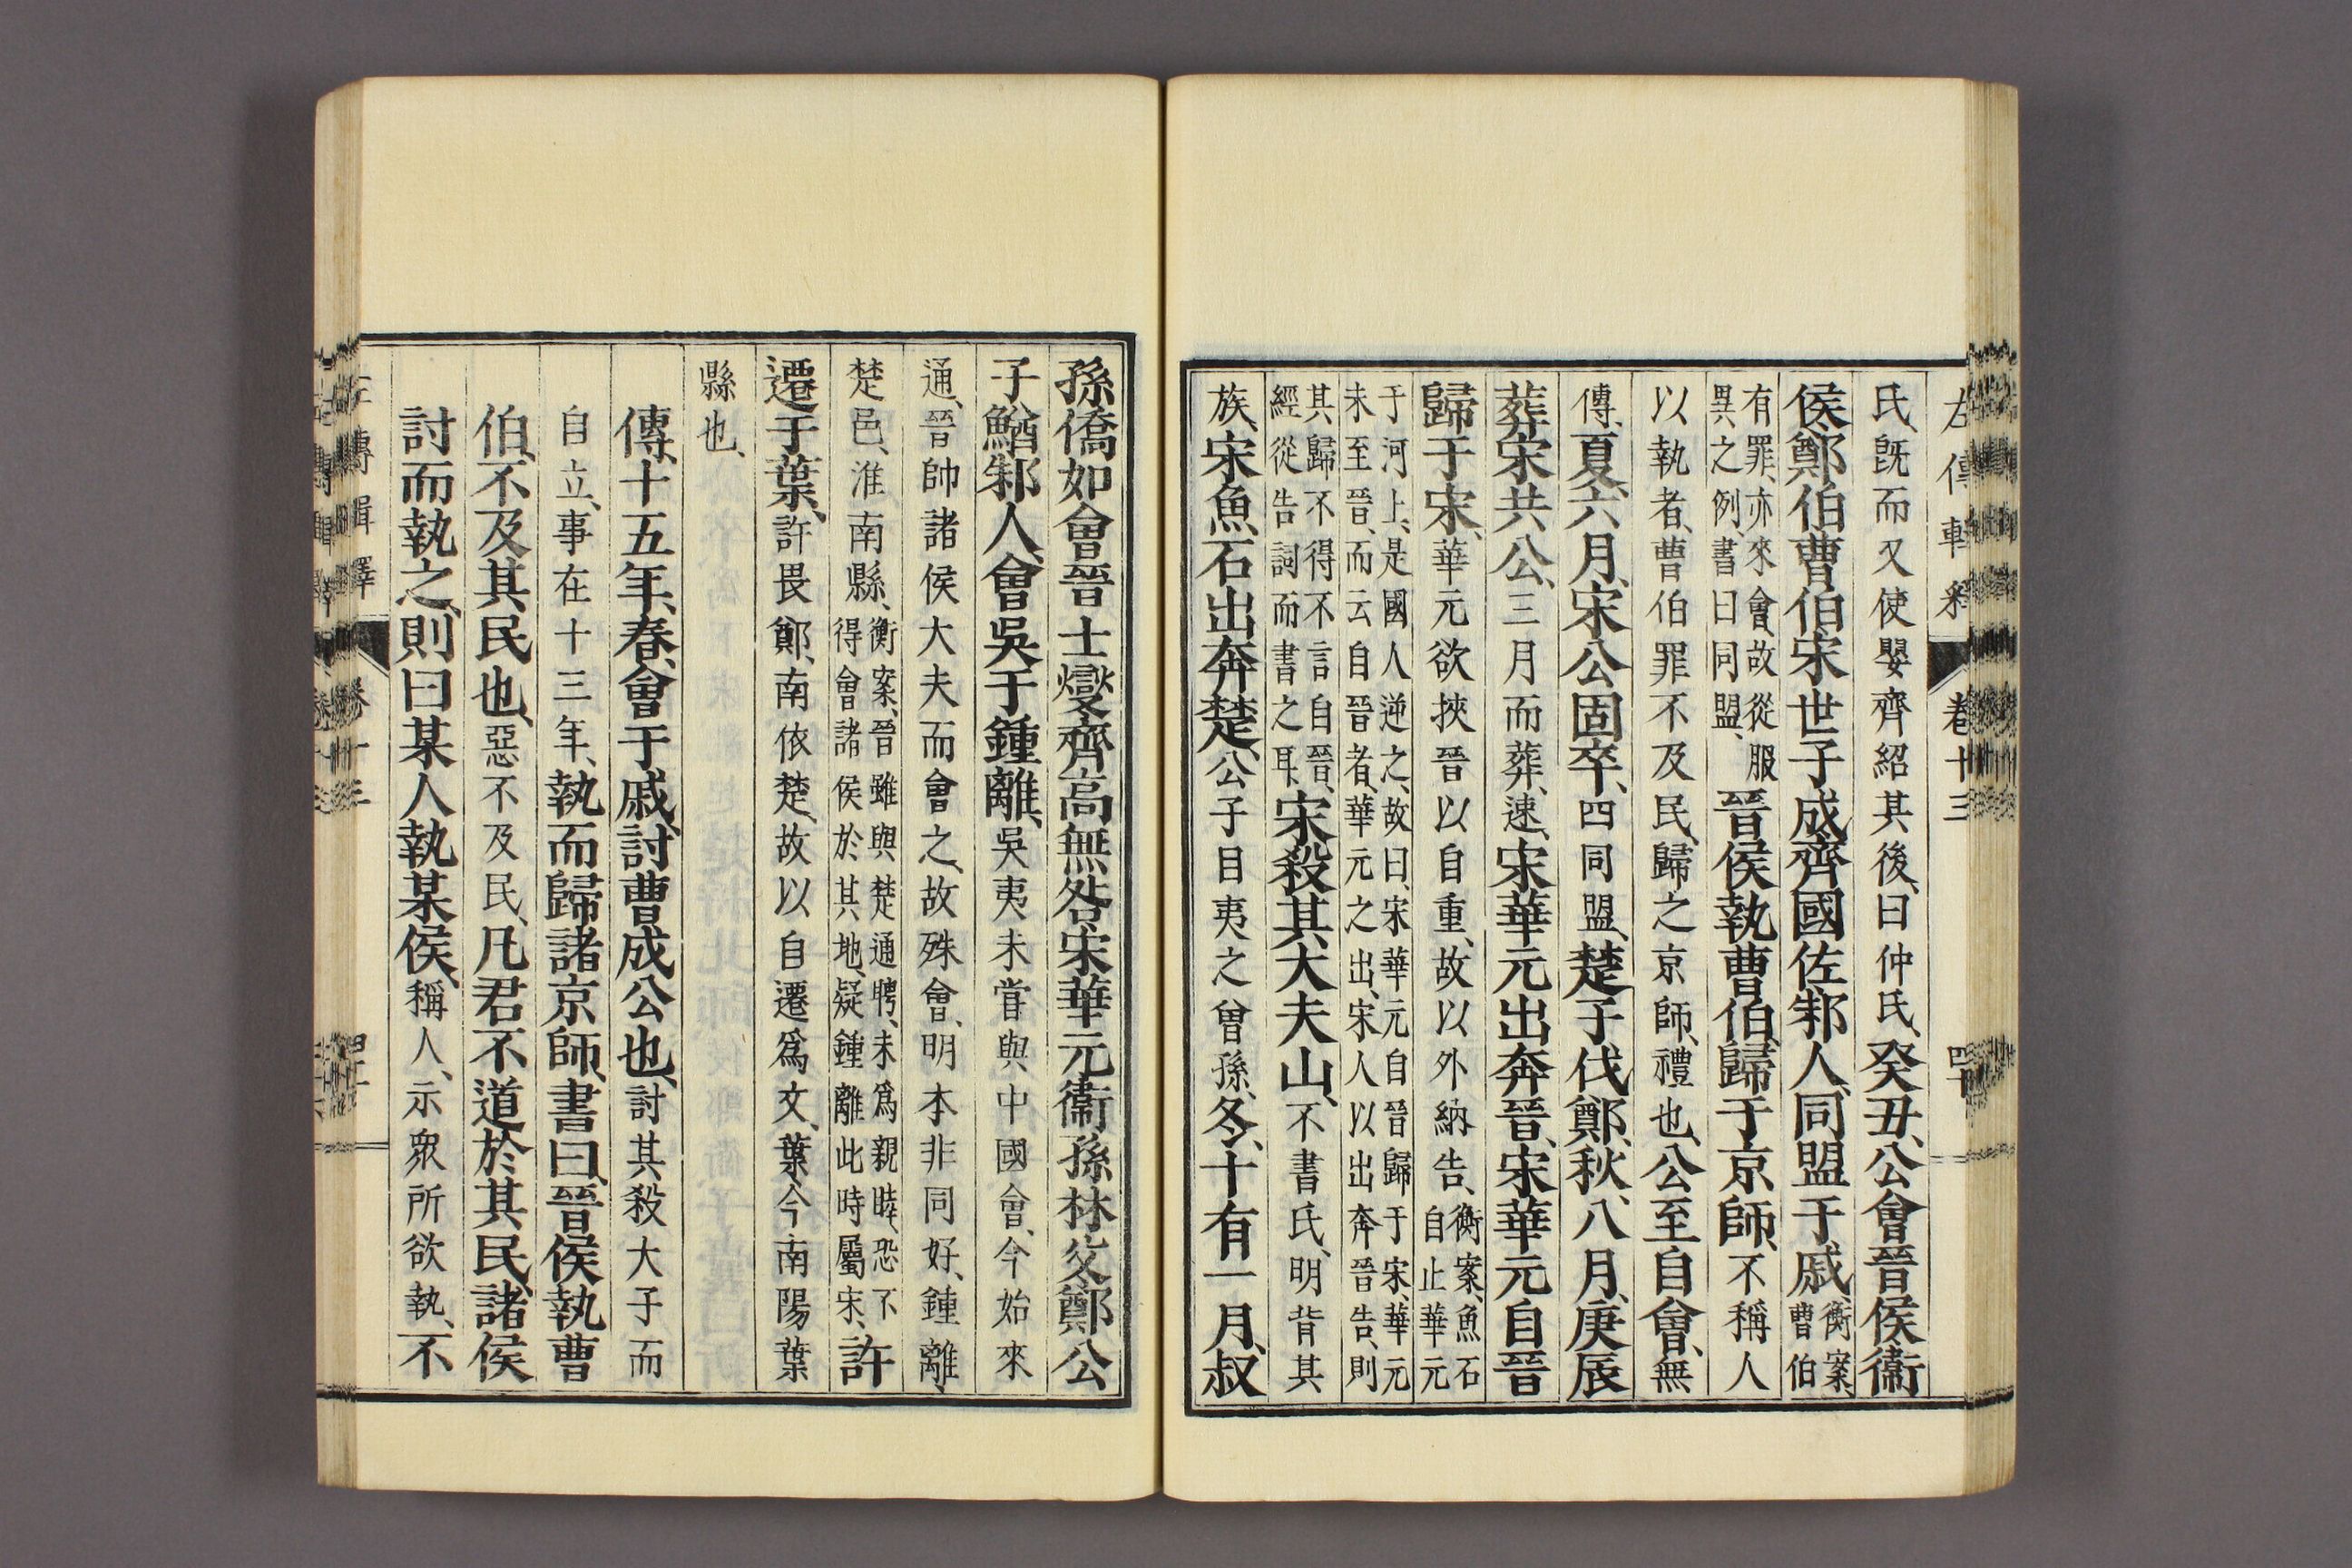 氏、既而又使嬰齊紹其後、曰仲氏、癸丑、公會晉侯衞
侯鄭伯曹伯宋世子成齊國佐邾人、同盟于戚、衡案、曹伯
有罪、亦來會、故從服異之例、書曰同盟、晉侯執曹伯、歸于京師、不稱人
以執者、曹伯罪不及民、歸之京師、禮也、公至自會、無
傳、夏、六月、宋公固卒、四同盟、楚子伐鄭、秋、八月、庚辰
葬宋共公、三月而葬、速、宋華元出奔晉、宋華元自晉
歸于宋、華元欲挾晉以自重、故以外納告、衡案、魚石自止華元
于河上、是國人逆之、故曰、宋華元自晉歸于宋、華元未至晉、而云自晉者、華元之出、宋人以出奔晉告、則
其歸不得不言自晉、經從告詞而書之耳、宋殺其大夫山、不書氏、明背其
族、宋魚石出奔楚、公子目夷之曾孫、冬、十有一月、叔
左傳輯釋 卷十三 四十
孫僑如會晉士燮齊高無咎宋華元衞孫林父鄭公
子鰌邾人、會吳于鍾離、吳夷未嘗與中國會、今始來
通、晉帥諸侯大夫而會之、故殊會、明本非同好、鍾離、
楚邑、淮南縣、衡案、晉雖與楚通聘、未爲親睦、恐不得會諸侯於其地、疑鍾離此時屬宋、許
遷于葉、許畏鄭、南依楚、故以自遷爲文、葉、今南陽葉
縣也、
傳、十五年、春、會于戚、討曹成公也、討其殺大子而
自立、事在十三年、執而歸諸京師、書曰、晉侯執曹
伯、不及其民也、惡不及民、凡君不道於其民、諸侯
討而執之、則曰某人執某侯、稱人、示衆所欲執、不
左傳輯釋 卷十三